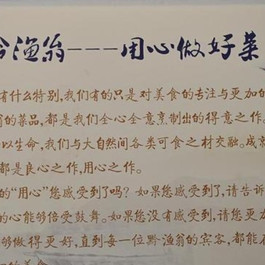 渔翁---用心做好菜
有什么特别,我们有的只是对美食的专注与更加的
的菜品,都是我们全心全意烹制出的得意之作。
以生命,我们与大自然间各类可食之材交融。成京
都是良心之作,用心之作。
的“用心”您感受到了吗?如果您感受到了,请告诉
的心能够倍受鼓舞。如果您没有感受到,请您更加
够做得更好,直到每一位黔渔翁的宾容,都能在